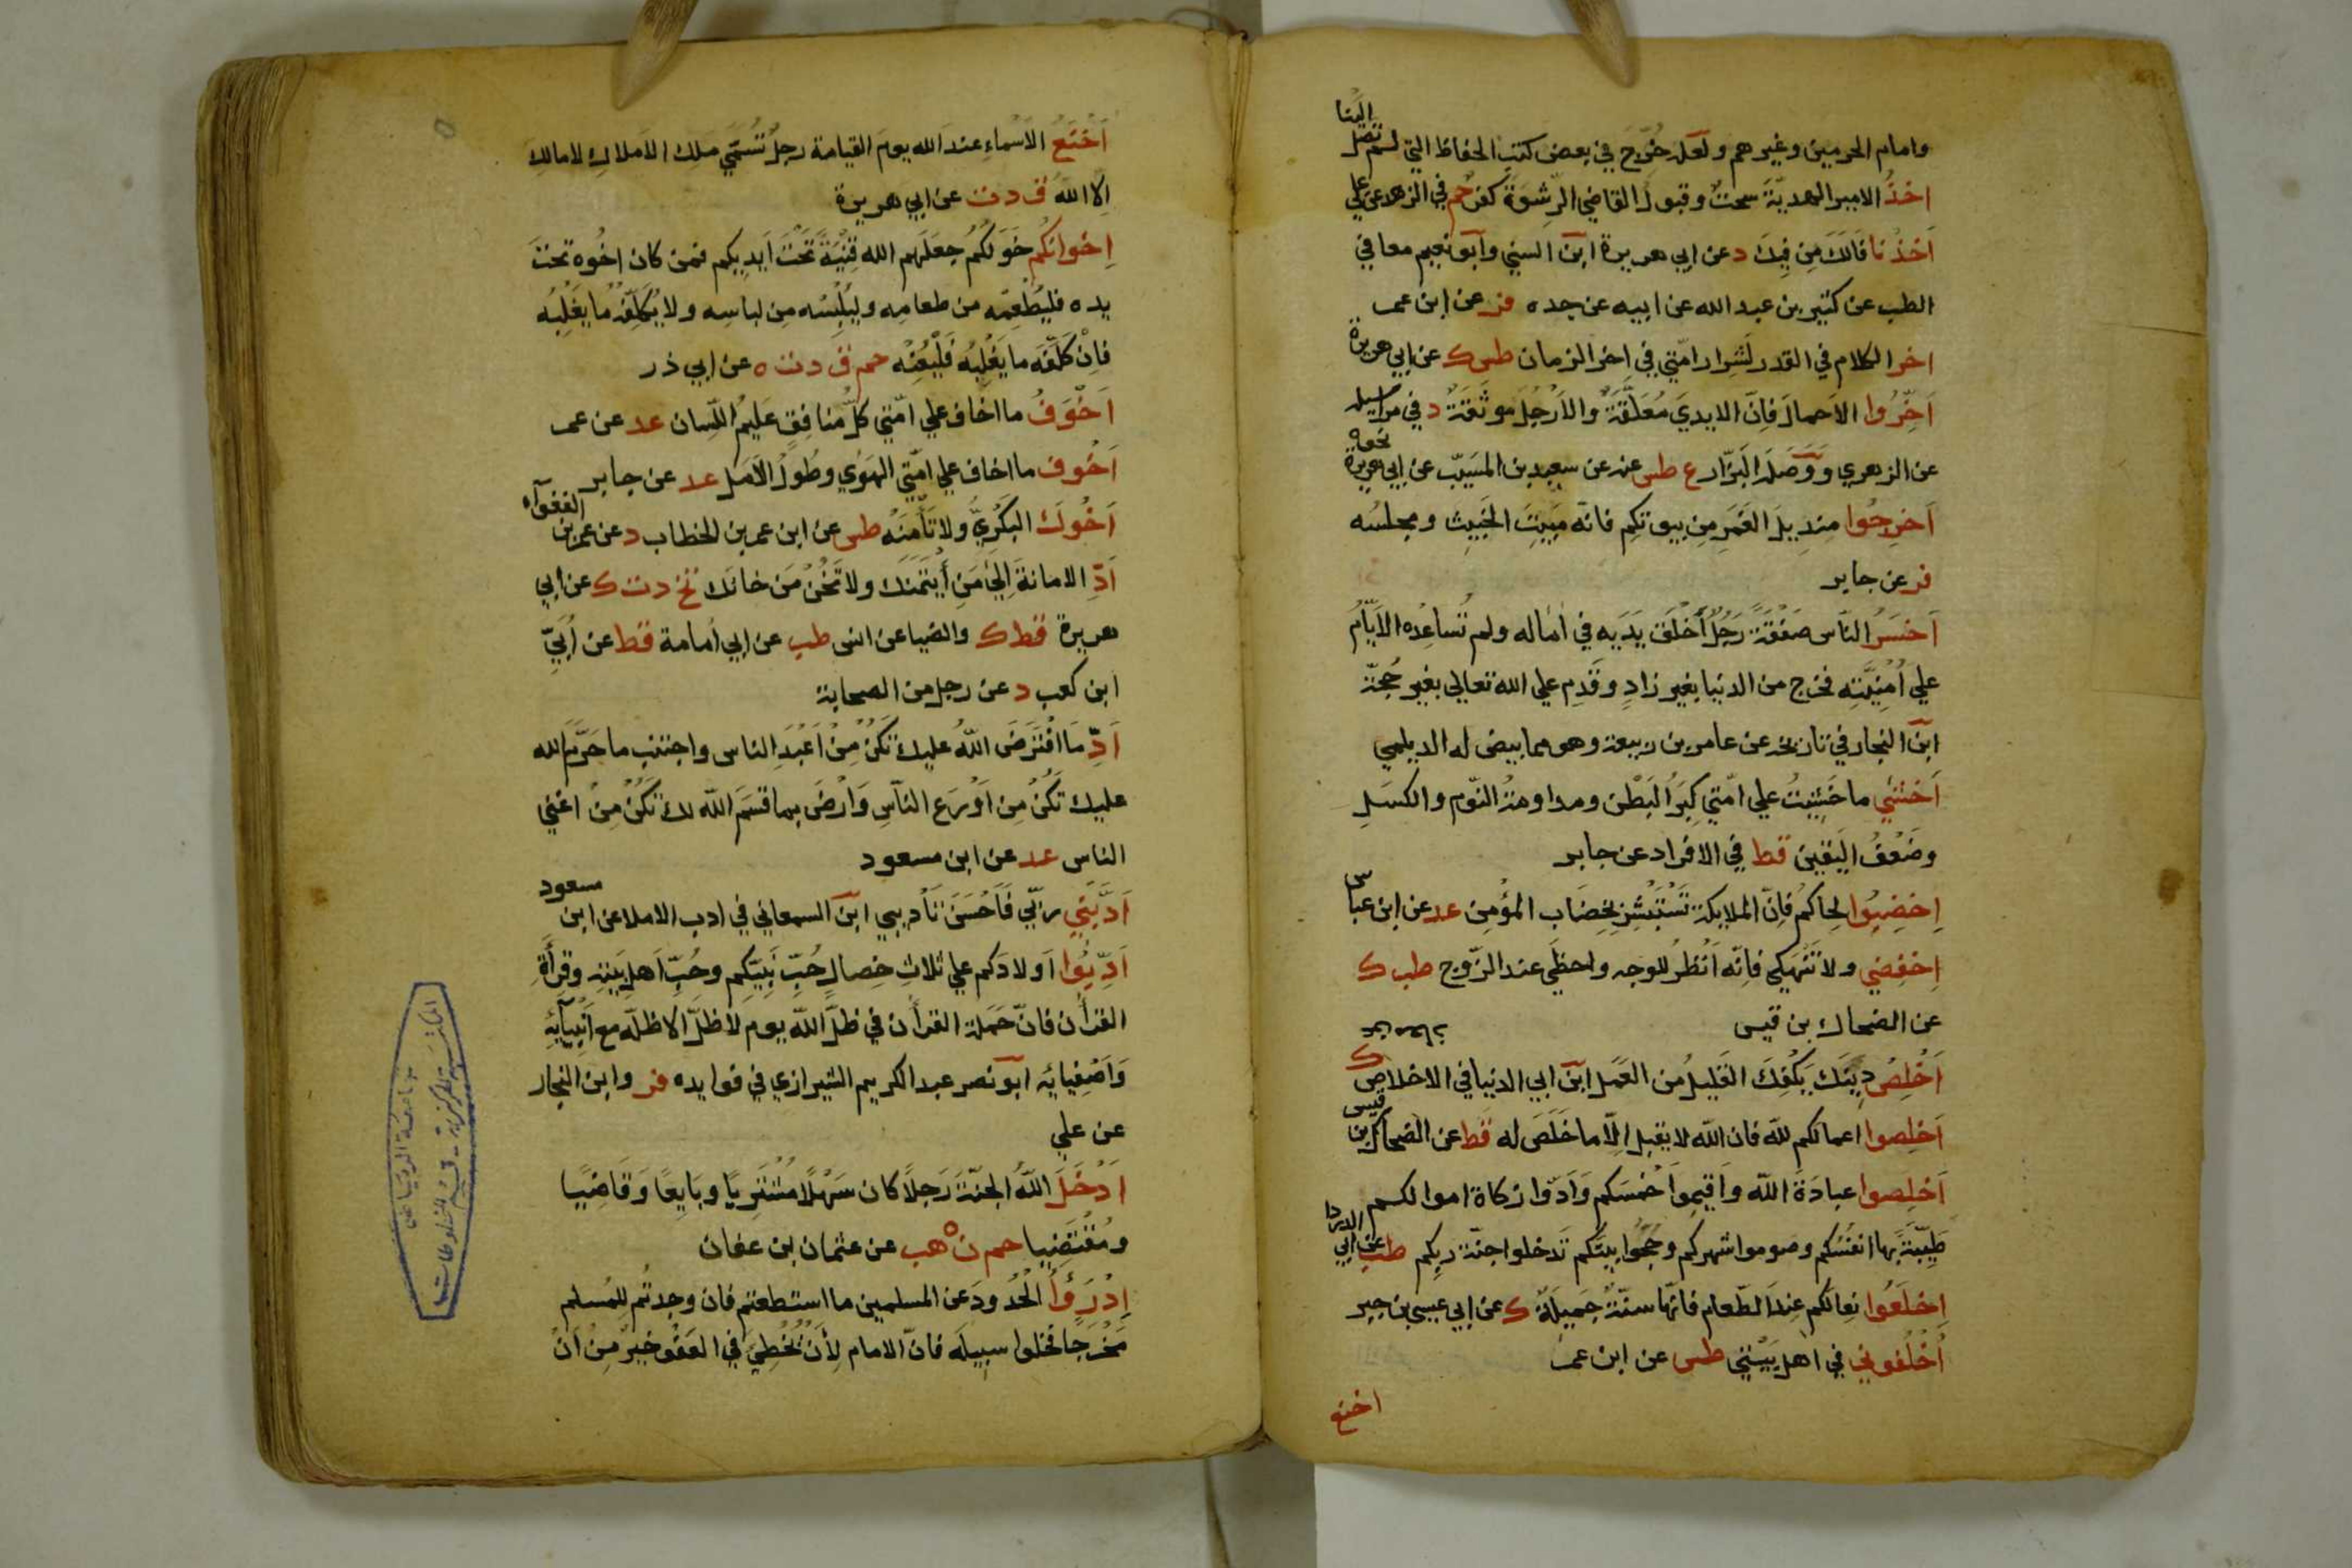 وامام الحرمين وغيرهم ولعله خُرّج في بعض كتب الحفاظ التي لم تصل الينا
اخذُ الامير الهديّة سحتٌ وقبول القاضي الرِّشوَة كفر حم في الزهد عن علي
اَخذْنا فَالَكَ مِن فِيكَ د عن ابي هريرة ابن السني وابو نعيم معا في
الطب عن كثير بن عبد الله عن ابيه عن جده فر عن ابن عمر
اخر الكلام في القدر لشِرار امّتي في اخر الزمان طس ك عن ابي هريرة
اَخِّرُوا الاَحمالَ فَاِنّ الايديَ مُعَلَّقَةٌ والاَرْجُلَ موثَقَةٌ د في مراسيله
عن الزهري وَوَصَلَه البَزّار ع طس عنه عن سعيد بن المسَيّب عن ابي هريرة نحوه
اَخرِجُوا مِنديلَ الغَمَرِ مِن بيوتكِم فانّه مَبِيتُ الخَبِيث ومجلسُه
فر عن جابر
اَخسَرُ النّاس صَفْقَةً رَجُلٌ اَخْلَقَ يَدَيه في اٰماله ولم تُساعِدْه الاَيّامُ
علي اُمْنِيَّتِه فخرج من الدنيا بغير زادٍ وقَدِم علي الله تعالي بغير حُجّة
ابن النجار في تاريخه عن عامر بن ربيعة وهو مما بيض له الديلمي
اَخشٰي ما خَشِيتُ علي امّتي كِبَرُ البَطْن ومداومةُ النّوم والكسَلِ
وضَعْفُ اليَقين قط في الافراد عن جابر
اِخضِبُوا لِحاكم فاِنّ الملايكة تَسْتَبْشِرُ بِخِضَاب المؤمِن عد عن ابن عباس
اِخفِضي ولا تَنْهَكي فاِنّه اَنْظَرُ للوجه واحظَي عند الزّوج طب ك
عن الضحاك بن قيس
اَخْلِصْ دِينَكَ يَكْفِكَ القَلِيلُ مِن العَمَل ابن ابي الدنيا في الاخلاص ك
اَخلِصوا اعمالكم للّه فان اللّه لا يقبل اِلّا ما خَلَصَ له قط عن الضحاك بن قيس
اَخلِصوا عبادَةَ اللّه واَقيمُوا خَمْسَكم وَاَدّوا زكاة اموالكم
طَيِّبَةً بها انفُسُكم وصوموا شهركم وحُجّوا بيتَكم تَدخلوا جنّة ربكم طب عن ابي الدردا
اِخلَعُوا نِعالَكم عِندَ الطّعام فانّها سنّةٌ جَمِيلَةٌ ك عن ابي عبس بن جبر
اُخْلُفوني في اهل بَيْتي طس عن ابن عمر
اخنع
اَخْنَعُ الاَسْماءِ عند الله يوم القيامة رجلٌ تَسَمّي مَلِك الاملاكِ لا مالكَ
اِلا اللهُ ق د ت عن ابي هريرة
اِخوانكم خَوَلُكُم جعَلَهم الله قِنْيَةً تَحْتَ اَيديكم فمن كان اخُوه تحتَ
يده فليُطْعِمْه من طعامِه وليُلْبِسْه مِن لباسِه ولا يُكَلِّفْه ما يَغْلِبُه
فاِنْ كَلَّفَه ما يَغْلِبُه فَلْيُعِنْه حم ق د ت ه عن ابي ذر
اَخْوَفُ ما اخاف علي امّتي كلّ منافِقٍ عَلِيمُ اللّسان عد عن عمر
اَخْوَف ما اخاف علي امّتي الهَوٰي وطُولُ الاَمَل عد عن جابر
اَخُوك البَكْريُّ ولا تَأمَنْه طس عن ابن عمر بن الخطاب د عن عمرو بن الفغوآء
اَدِّ الامانةَ اِلٰي مَنِ اْئْتَمَنَك ولا تَخُنْ مَن خانَك تخ د ت ك عن ابي
هريرة قط ك والضيا عن انس طب عن ابي اُمامة قط عن اُبَيّ
ابن كعب د عن رجل من الصحابة
اَدِّ مَا افْتَرَضَ اللّهُ عليك تَكُنْ مِنْ اَعْبَدِ الناس واجتنب ما حَرّم الله
عليك تَكُنْ مِن اَوْرَعِ النّاسِ وَارْضَ بما قسَمَ اللّه لك تَكُنْ مِنْ اغني
الناس عد عن ابن مسعود
اَدَّبَني ربّي فَاَحْسَنَ تَأديبي ابن السمعاني في ادب الاملا عن ابن مسعود
اَدِّبُوا اَولادَكم علي ثلاثِ خِصالٍ حُبِّ نَبِيّكم وحُبِّ اَهلِ بَيْتِه وقِراَةِ
القراٰن فانّ حَمَلة القراٰن في ظلّ اللّه يوم لا ظلّ الا ظلّه مع اَنبيآئِه
وَاَصْفِيائِه ابو نصر عبد الكريم الشيرازي في فوايده فر وابن النجار
عن علي
اَدْخَلَ اللّهُ الجنّةَ رَجلاً كان سَهْلًا مُشْتَرِيًا وبَايِعًا وقَاضِيًا
ومُقْتَضِيا حم ن ه هب عن عثمان بن عفان
اِدْرَؤُا الحُدُودَ عن المسلمين ما استطعتم فان وجدتُم لِلمُسلم
مَخْرَجا فخلوا سبيلَه فانّ الامام لِاَنْ يُخْطِيَ في العَفْو خيرٌ مِنْ اَنْ
المكتبة المركزية - قسم المخطوطات
جامعة الرياض